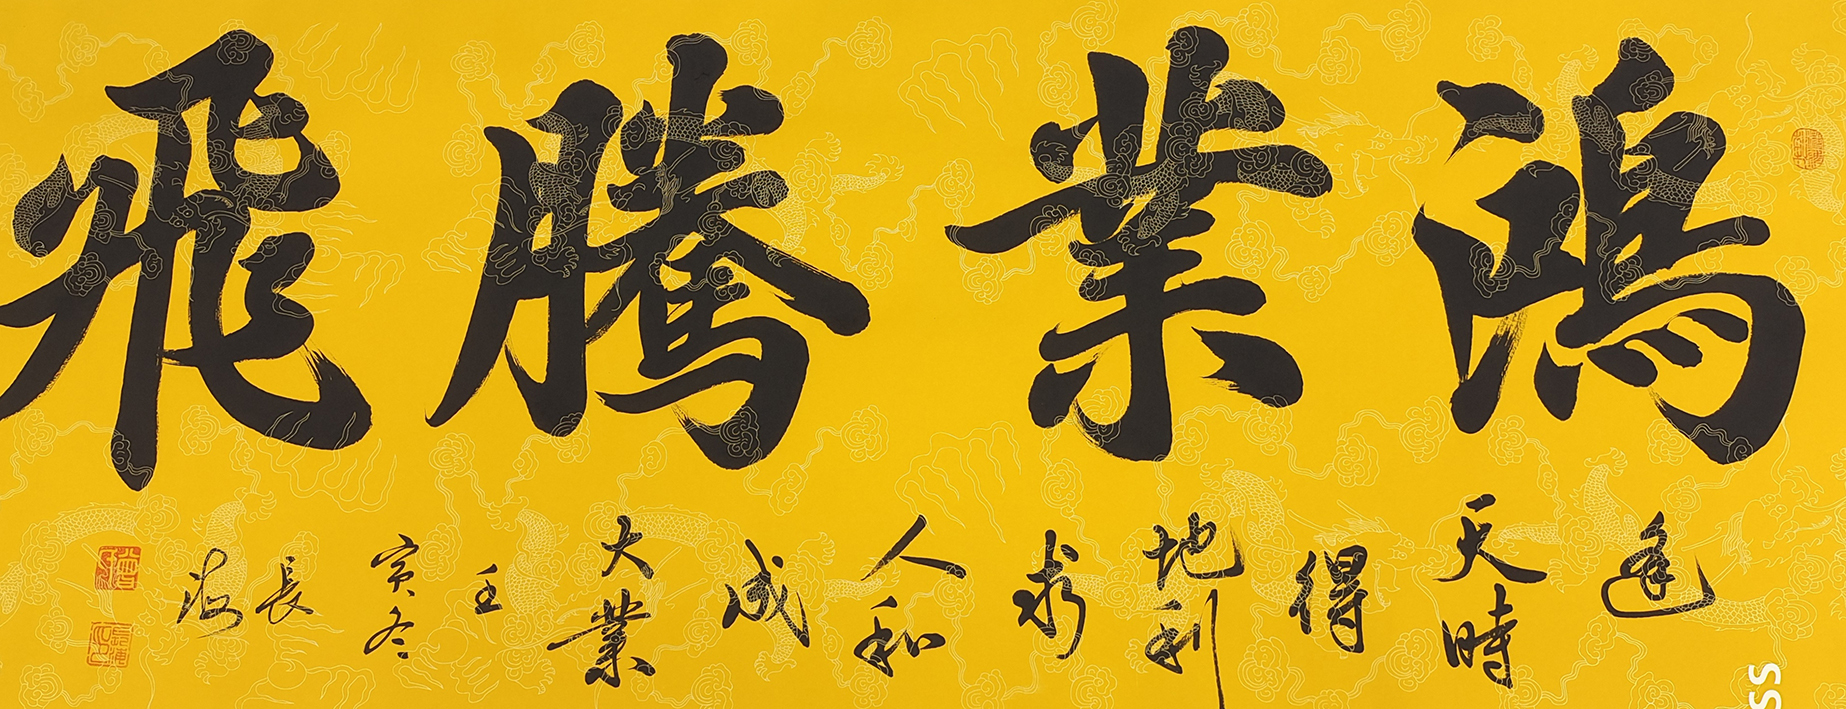 鴻業騰飛
逢天時得地利人和成大業
壬寅冬
長海
SS